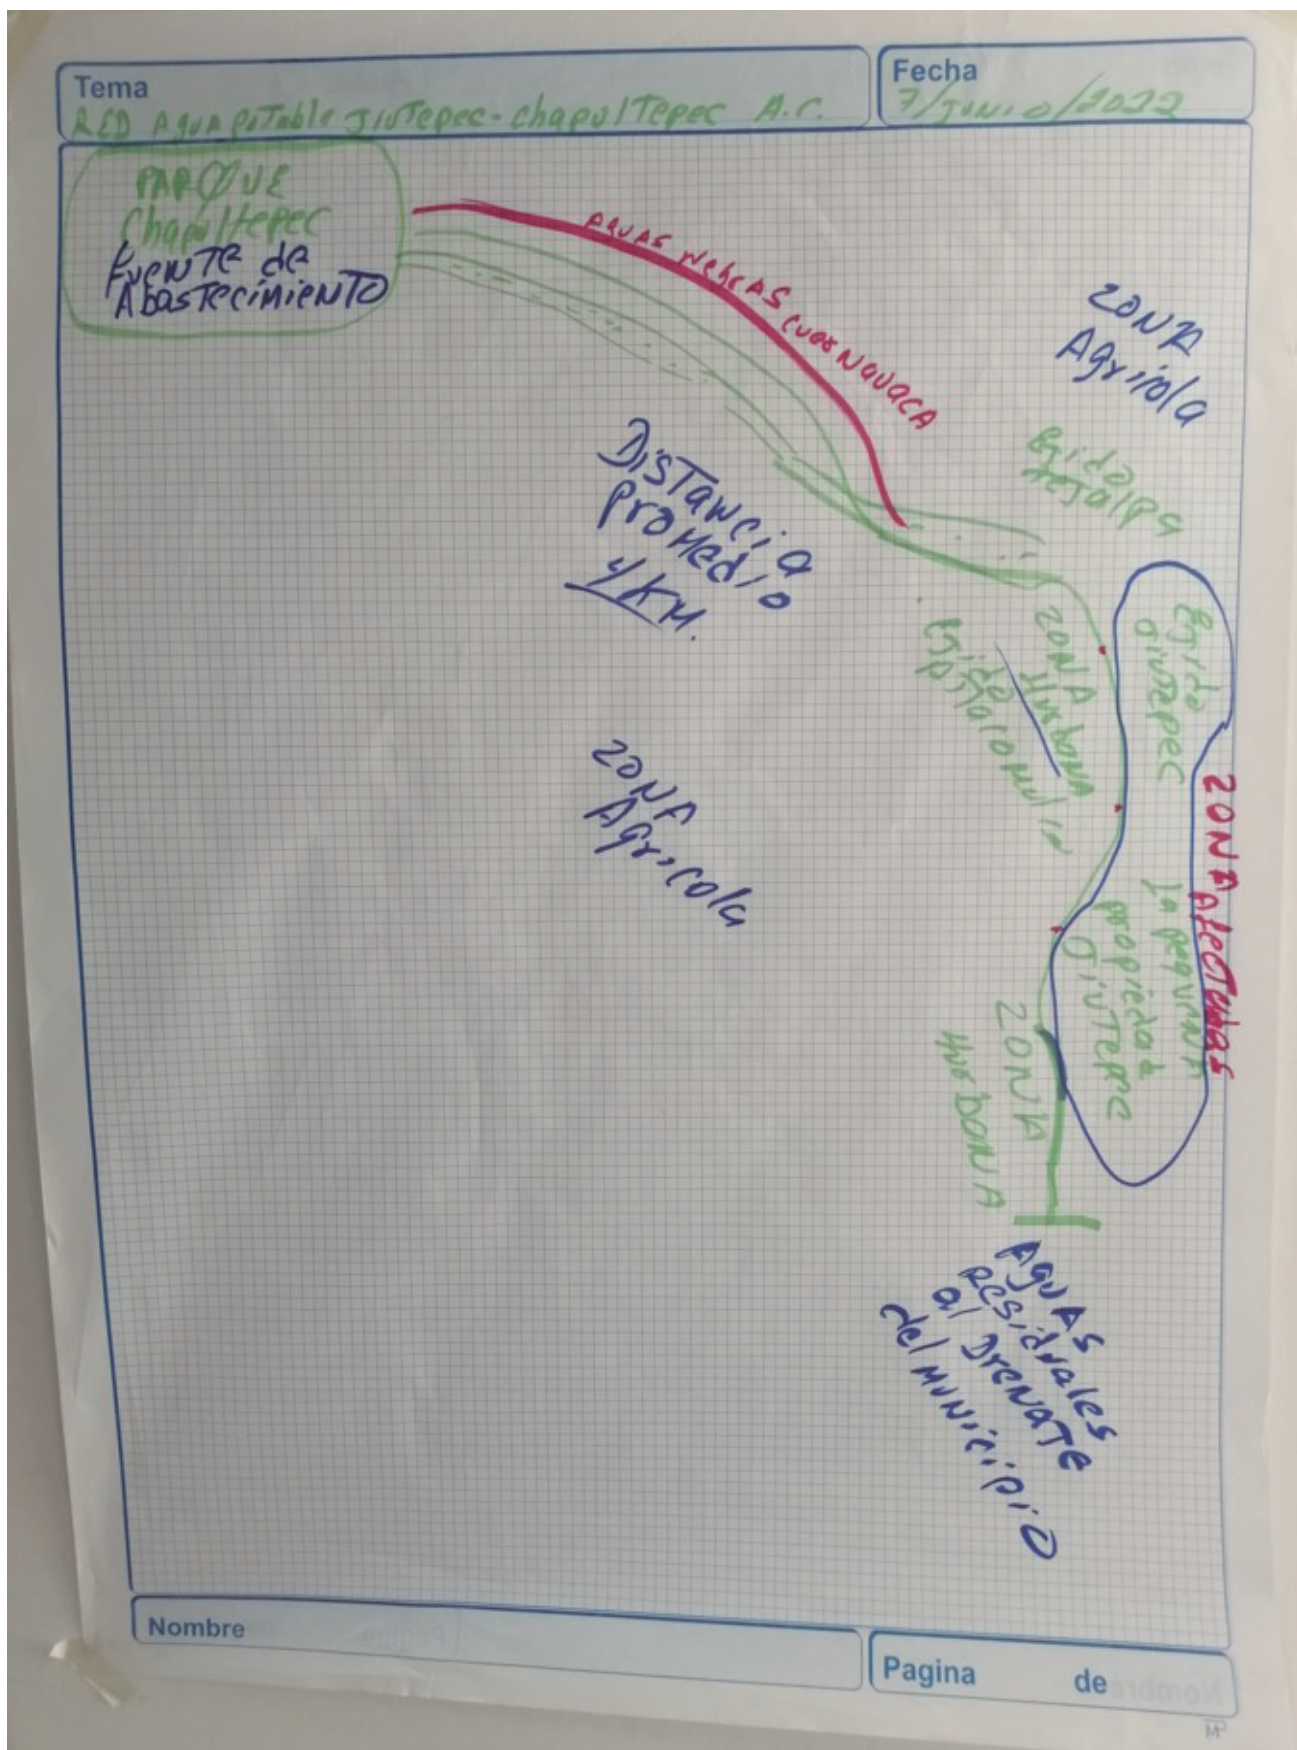 Tema
RED Agua potable Jiutepec-Chapultepec A.C.
Fecha
7/Junio/2022
PARQUE
Chapultepec
Fuente de
Abastecimiento
AguAS NegrAS CuerNavaca
ZONA
Agricola
Ejido
Tejalpa
Distancia
Promedio
4 KM.
Ejido
ZONA
Hurbana
Ejido
Jiutepec
ZONA Afectadas
ZONA
Agricola
La pequeña
propiedad
Jiutepec
ZONA
HurbanA
AguAS
Residuales
al DrenaJe
del Municipio
Nombre
Pagina de